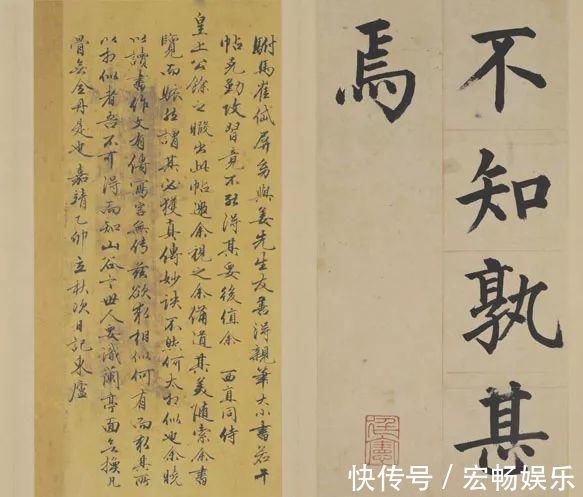 不知孰其
焉
駙馬崔岱屏與姜先生友善得親筆大小書若干
帖克勤攻習竟不能得其要後值余 西直同侍
皇上公餘之暇出此帖邀余視之余備道其美隨索余書
覽而然謂其必獲真傳妙訣不然何太相似也余曉
以讀書作文有傳寫字無傳茲欲求相似何有而求其所
以相似者吾不可得而知山谷云世人要識蘭亭面無換凡
骨無金丹是也 嘉靖乙卯立秋次日記東廬
快传号 / 宏畅娱乐